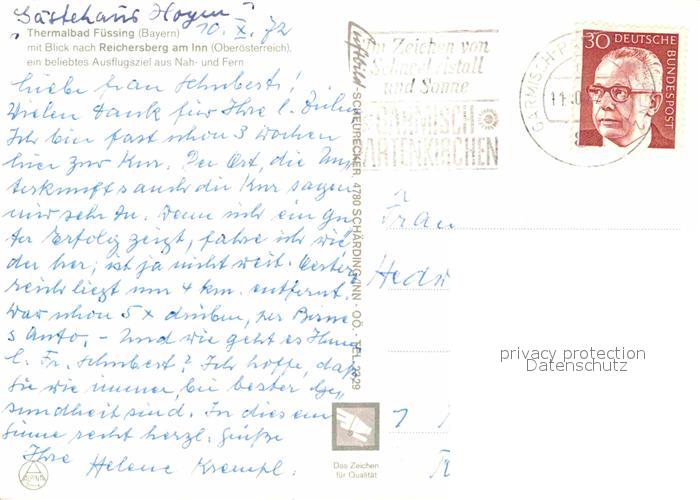 "Gästehaus Hogen"
10. X. 72
Thermalbad Füssing (Bayern)
mit Blick nach Reichersberg am Inn (Oberösterreich),
ein beliebtes Ausflugsziel aus Nah- und Fern
Liebe Frau Schubert!
Vielen Dank für Ihre l. Zeilen
Ich bin fast schon 3 Wochen
hier zur Kur. Der Ort, die Un-
terkunft & auch die Kur sagen
mir sehr zu. Wenn sich ein gu-
ter Erfolg zeigt, fahre ich wie-
der her; ist ja nicht weit. Oester-
reich liegt nur 4 km. entfernt.
War schon 5x drüben, per
s Auto. - Und wie geht es Ihnen
l. Fr. Schubert? Ich hoffe, daß
Sie wie immer, bei bester Ge-
sundheit sind. In diesem
Sinne recht herzl. Grüße
Ihre Helene Krempl.
Luftbild SCHEURECKER, 4780 SCHÄRDING/INN · OÖ. · TEL. 2329
Im Zeichen von
Schneekristall
und Sonne
GARMISCH
PARTENKIRCHEN
GARMISCH-P
11
30 DEUTSCHE
BUNDESPOST
Frau
Hedw
privacy protection
Datenschutz
Das Zeichen
für Qualität